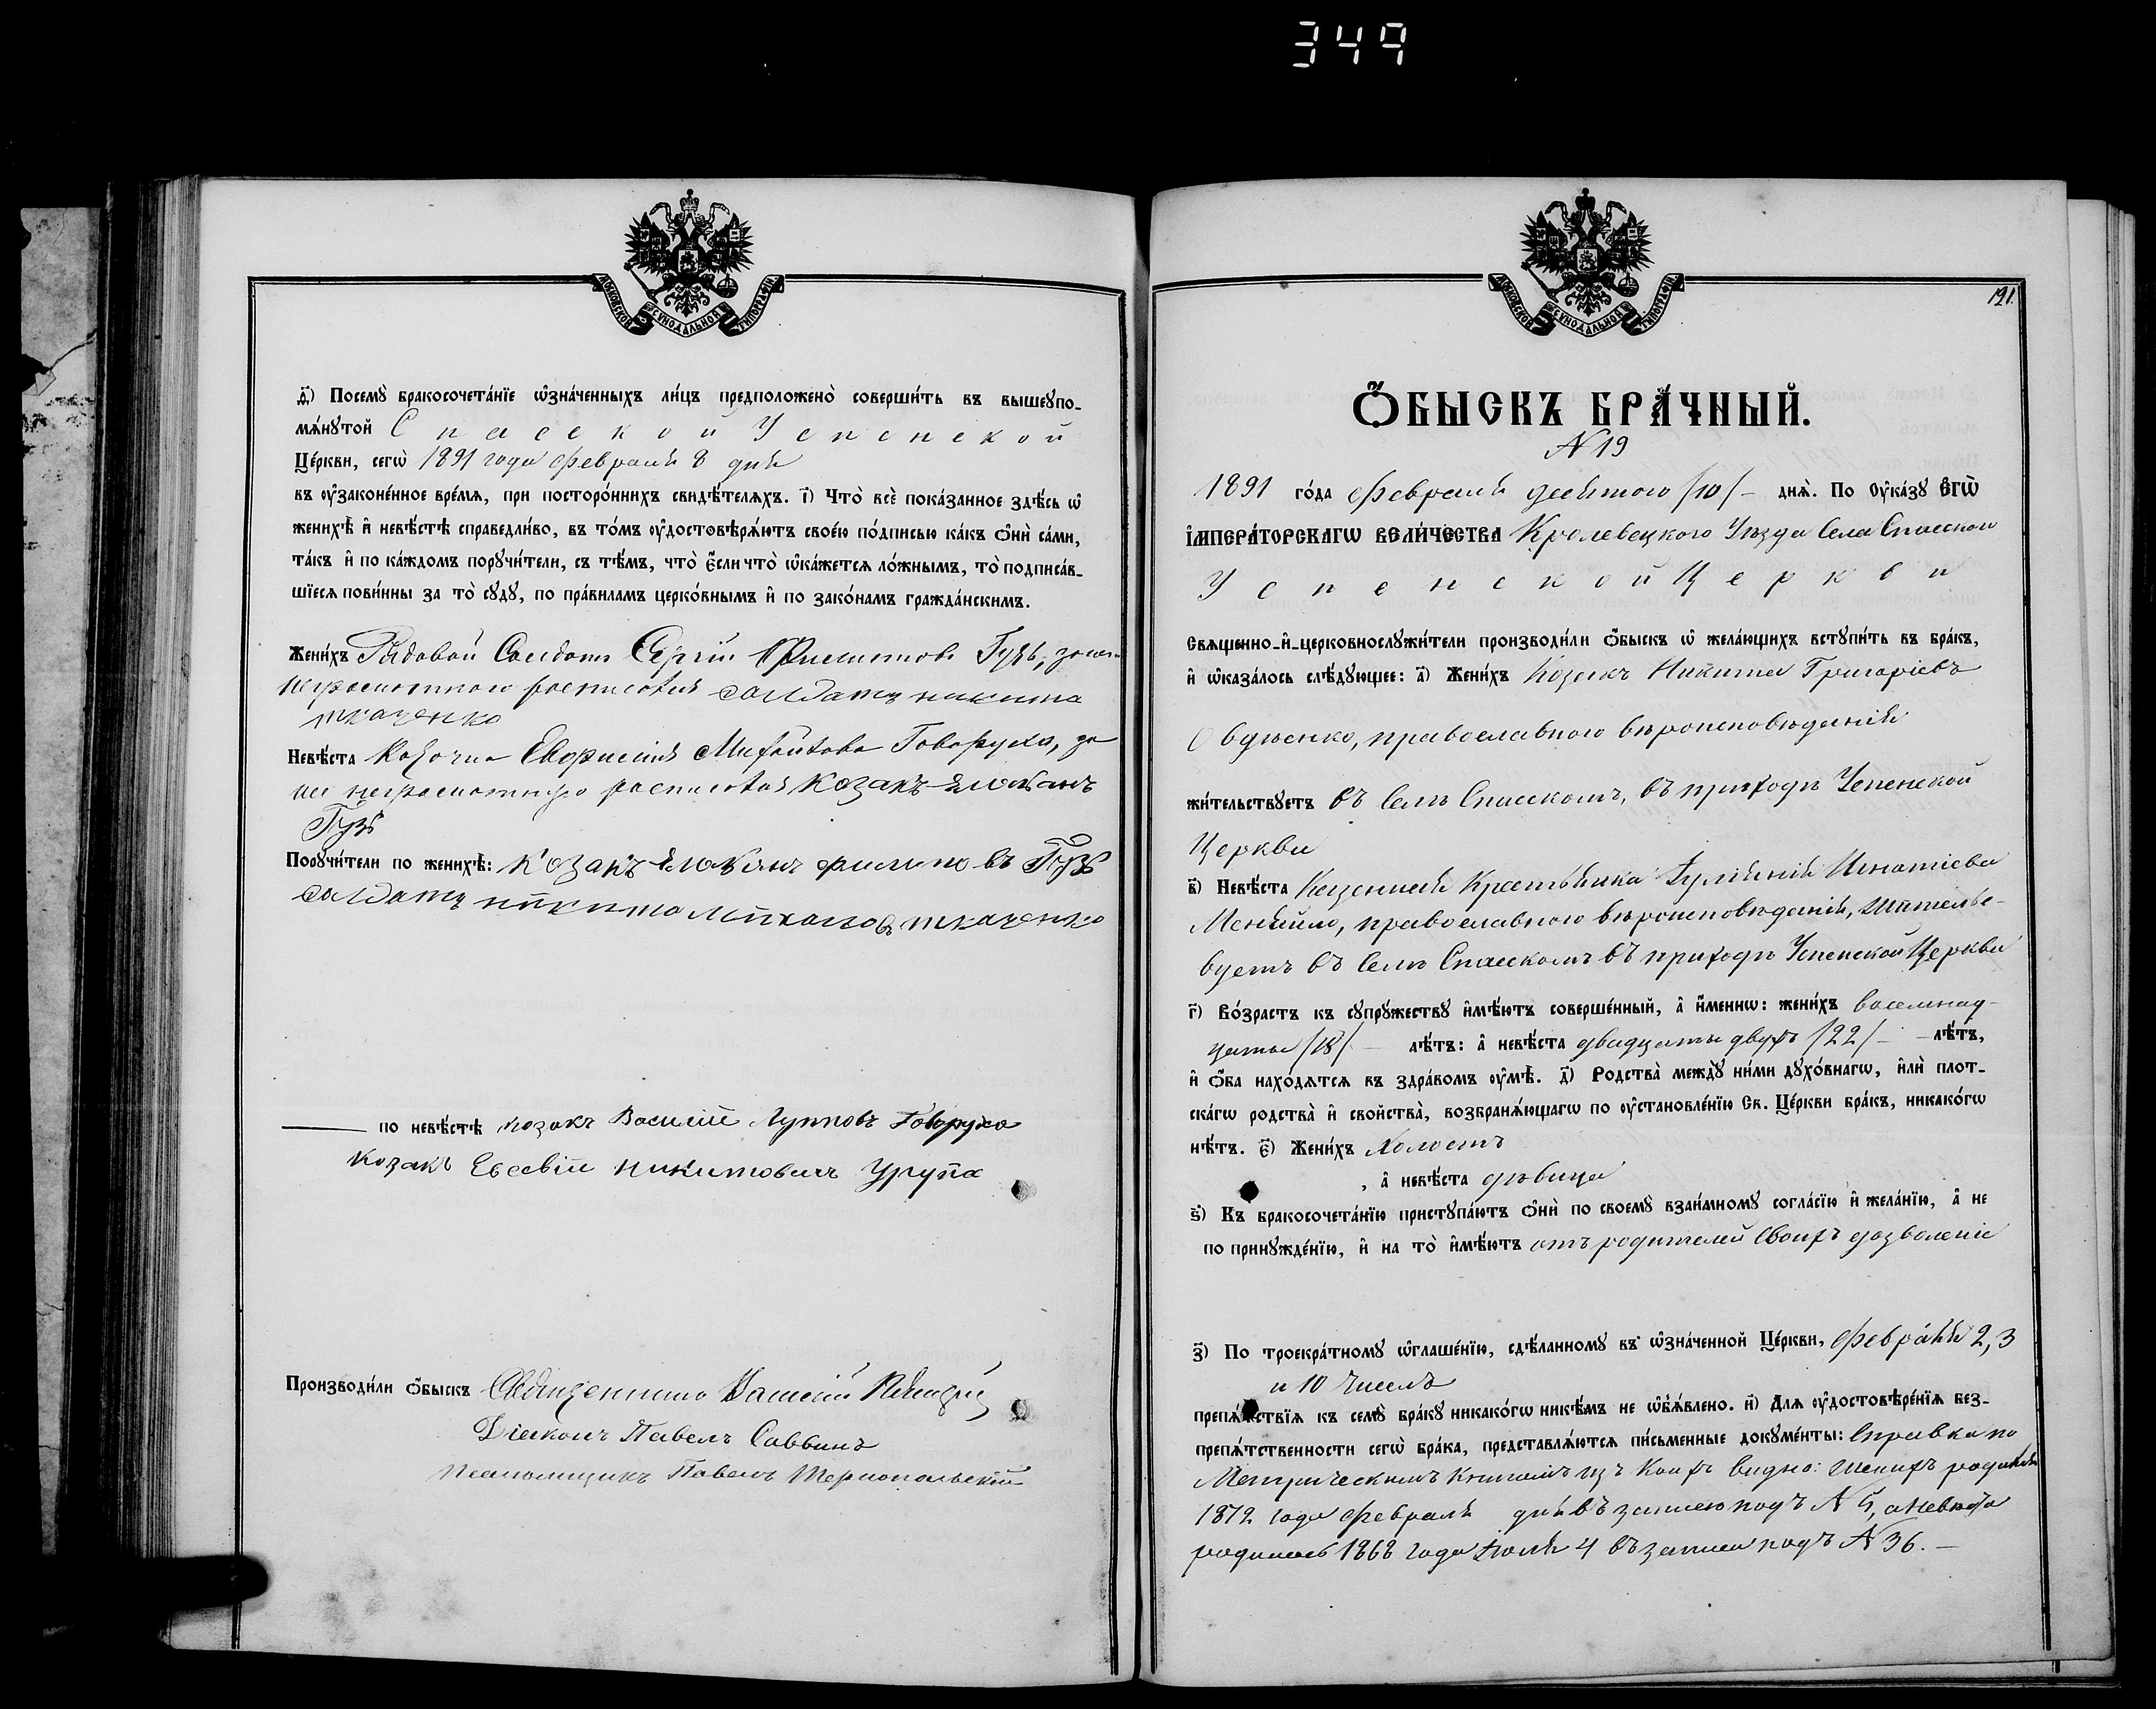 349
МОСКОВСКОЙ СѴНОДАЛЬНОЙ ТИПОГРАФІИ
д҃і) Посемꙋ̀ бракосочета́нїе ѡ҆зна́ченныхъ ли́цъ предположено̀ соверши́ть въ вышеꙋпо-
мѧ́нꙋтой Спасской Успенской
Це́ркви, сегѡ̀ 1891 года Февраля 8 дня
въ ᲂу҆законе́нное вре́мѧ, при посторо́ннихъ свидѣ́телѧхъ. і҃) Что̀ всѐ пока́занное здѣ́сь ѡ҆
женихѣ̀ и҆ невѣ́стѣ справедли́во, въ то́мъ ᲂу҆достовѣрѧ́ютъ свое́ю по́дписью ка́къ ѻ҆нѝ са́ми,
та́къ и҆ по ка́ждомъ порꙋчи́тели, съ тѣ́мъ, что̀ є҆́сли что̀ ѡ҆ка́жетсѧ ло́жнымъ, то̀ подписа́в-
шїесѧ пови́нны за то̀ сꙋдꙋ̀, по пра́виламъ церко́внымъ и҆ по зако́намъ гражда́нскимъ.
Жени́хъ Рядовой Солдатъ Сергій Филипповъ Гузь, за
неграмотного росписался солдатъ никита
ткаченко
Невѣ́ста Козачка Евфимія Михайлова Говоруха, за
не неграмотную росписался козакъ
Гузь
Порꙋчи́тели по женихѣ̀: козакъ филиповъ Гузь
солдатъ никита ткаченко
по невѣ́стѣ козакъ Василій Луповъ Говоруха
козакъ Евсевій никитовичъ Урупа
Производи́ли ѻ҆́быскъ Священникъ Василій
Діяконъ Павелъ Саввинъ
Псаломщикъ Павелъ Тернопольскій
МОСКОВСКОЙ СѴНОДАЛЬНОЙ ТИПОГРАФІИ
121.
Ѻ҆́БЫСКЪ БРА́ЧНЫЙ.
N 19
1891 го́да Февраля десятого /10/ – днѧ̀. По Оу҆ка́зꙋ Є҆гѡ̀
І҆мпера́торскагѡ Вели́чества Кролевецкого Уѣзда Села Спасской
Успенской Церкви
Свѧщенно-и҆-церковнослꙋжи́тели производи́ли ѻ҆́быскъ ѡ҆ жела́ющихъ встꙋпи́ть въ бра́къ,
и҆ ѡ҆каза́лось слѣ́дꙋющее: а҃) Жени́хъ Козакъ Никита Григоріевъ
Овдѣенко, православного вѣроисповѣданія
жи́тельствꙋетъ въ Селѣ Спасскомъ, въ приходѣ Успенской
Церкви
в҃) Невѣ́ста Казенная Крестьянка Іулиянія Игнатіева
Меняйло, православного вѣроисповѣданія, жительс-
вуетъ въ Селѣ Спасскомъ въ приходѣ Успенской Церкви
г҃) Во́зрастъ къ сꙋпрꙋ́жествꙋ и҆мѣ́ютъ соверше́нный, а҆ и҆́меннѡ: жени́хъ восемнад-
цать /18/ – лѣ́тъ: а҆ невѣ́ста двадцать двухъ /22/ – – лѣ́тъ,
и҆ ѻ҆́ба нахо́дѧтсѧ въ здра́вомъ ᲂу҆мѣ̀. д҃) Родства̀ междꙋ̀ ни́ми дꙋхо́внагѡ, и҆лѝ плот-
ска́гѡ родства̀ и҆ свойства̀, возбранѧ́ющагѡ по ᲂу҆становле́нїю Св. Це́ркви бра́къ, никако́гѡ
нѣ́тъ. є҃) Жени́хъ Холостъ
, а҆ невѣ́ста дѣвица
ѕ҃) Къ бракосочета́нїю пристꙋпа́ютъ ѻ҆нѝ по своемꙋ̀ взаи́мномꙋ согла́сїю и҆ жела́нїю, а҆ не
по принꙋжде́нїю, и҆ на то̀ и҆мѣ́ютъ отъ родителей своихъ дозволеніе
з҃) По троекра́тномꙋ ѡ҆глаше́нїю, сдѣ́ланномꙋ въ ѡ҆зна́ченной Це́ркви, Февраля 2, 3
и 10 Чиселъ
препѧ́тствїѧ къ семꙋ̀ бра́кꙋ никако́гѡ никѣ́мъ не ѡ҆б̾ѧ́влено. и҃) Длѧ ᲂу҆достовѣре́нїѧ без-
препѧ́тственности сегѡ̀ бра́ка, представлѧ́ютсѧ пи́сьменные докꙋме́нты: Справка по
Метрическимъ книгамъ изъ коихъ видно: женихъ родился
1872 года Февраля дня въ записи подъ N 5, а невѣста
родилась 1868 года Іюля 4 въ записи подъ N 36. –